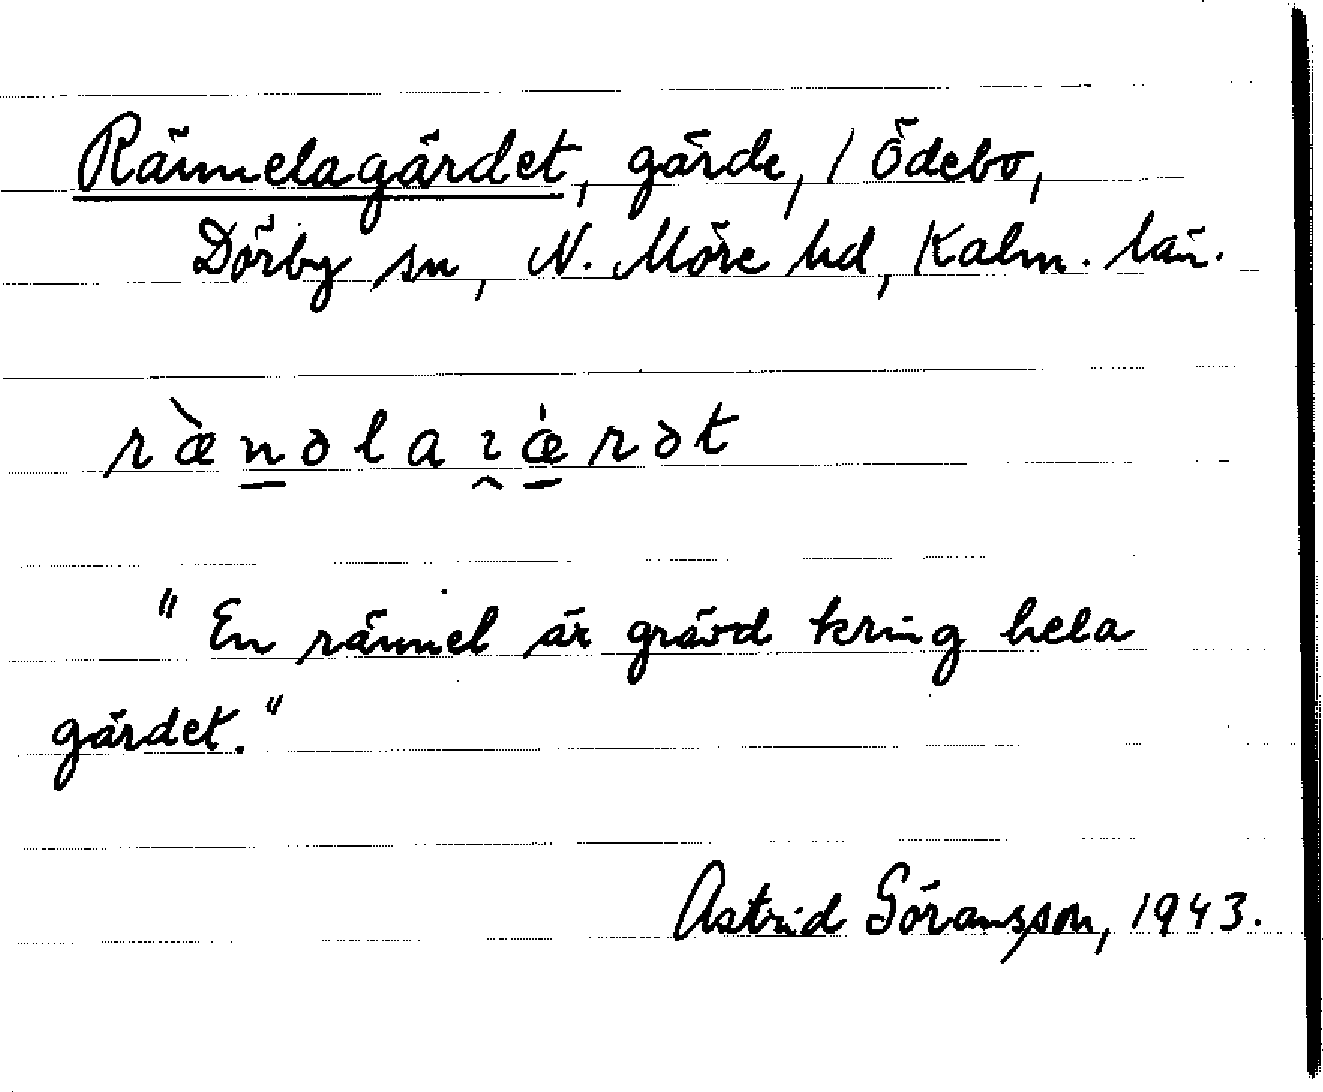 Rännelagärdet, gärde, / Ödebo,
Dörby sn, N. Möre hd, Kalm. län.
ræ̀nəlaɿǽrət
"En rännel är grävd kring hela
gärdet."
Astrid Göransson, 1943.